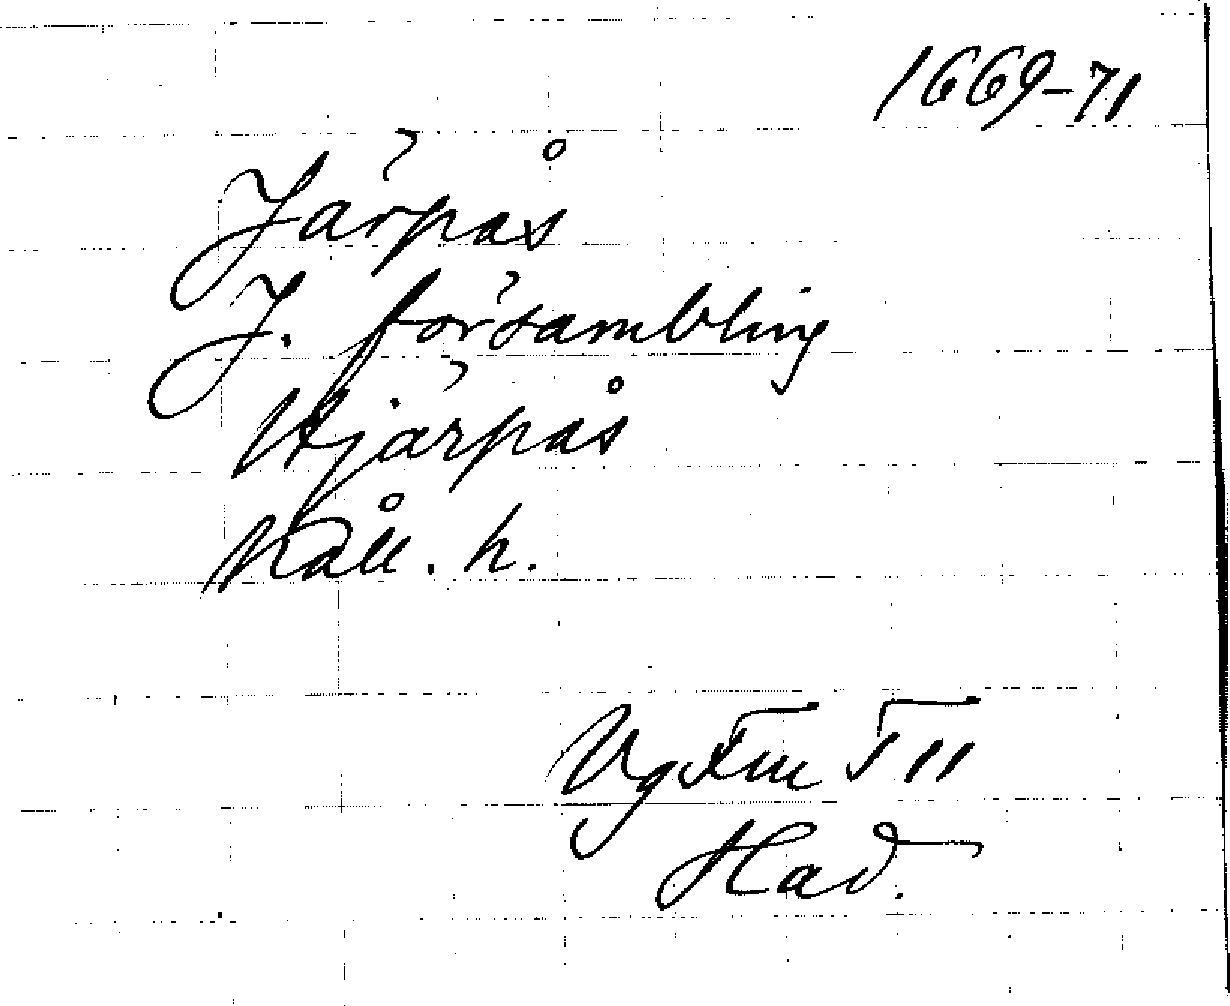 1669-71
Järpås
J. försambling
Hjärpås
Kåll. h.
Vg Fm T 11
Had.